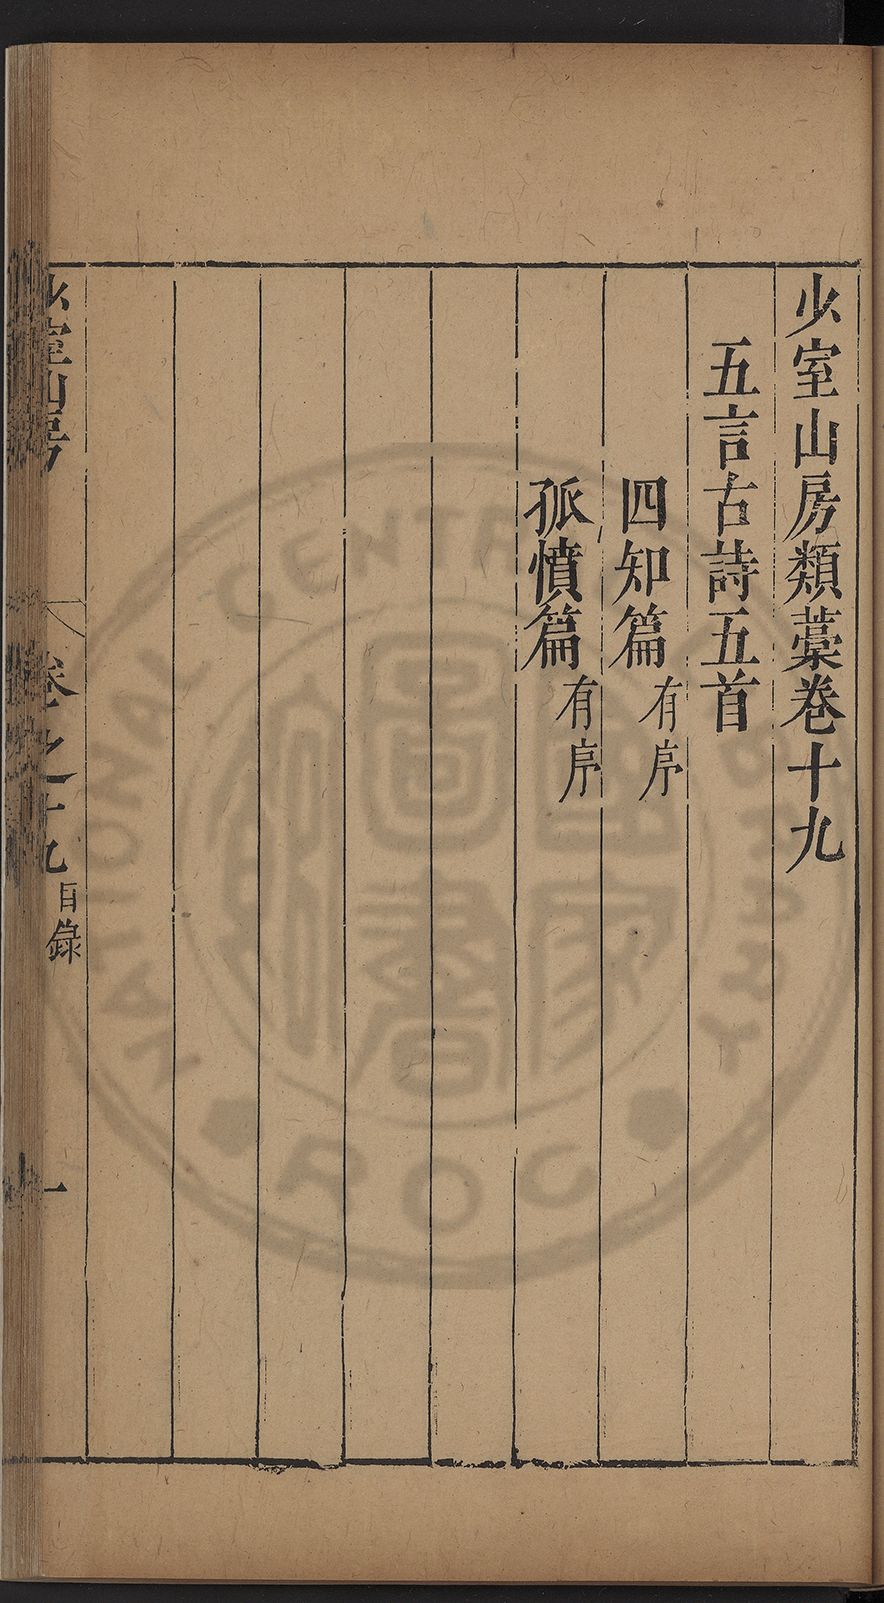 少室山房類藁卷十九
五言古詩五首
四知篇有序
孤憤篇有序
少室山房 卷之十九目錄 一
國家圖書館
NATIONAL CENTRAL LIBRARY
ROC